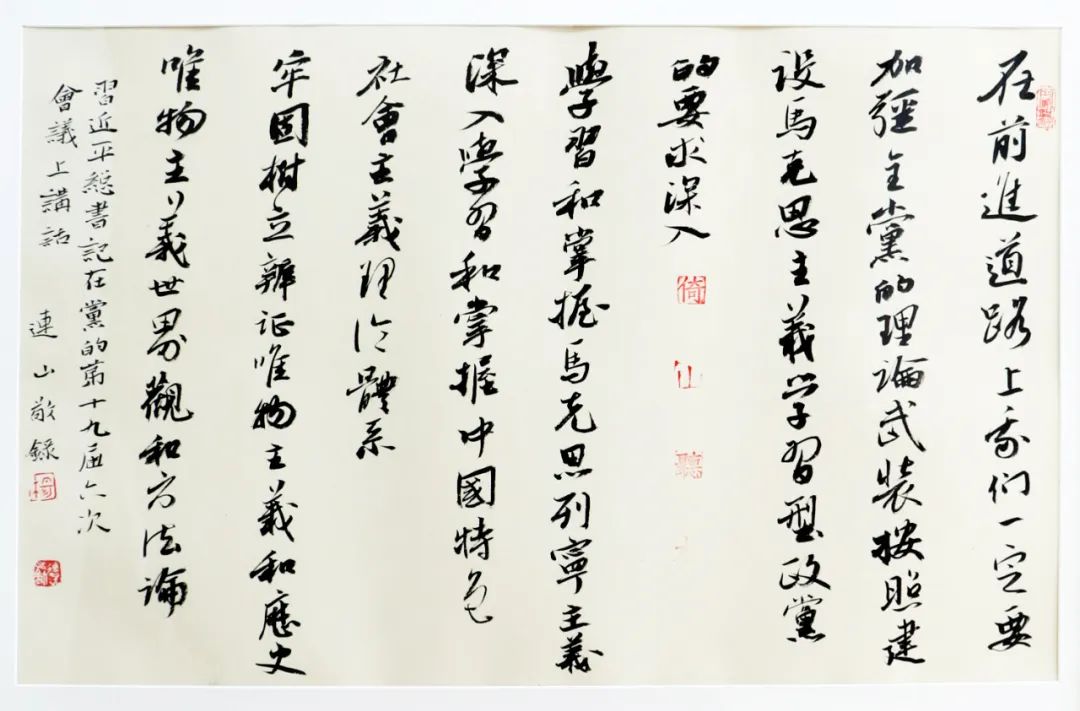 在前進道路上我们一定要
加彊全黨的理論武裝按照建
設馬克思主義学習型政黨
的要求深入 倚 山 聽
學習和掌握馬克思列寧主義
深入學習和掌握中國特色
社會主義理论體系
牢固樹立辨证唯物主義和歷史
唯物主義世界觀和方法論
習近平總書記在黨的第十九届六次
會議上講話 連山敬錄